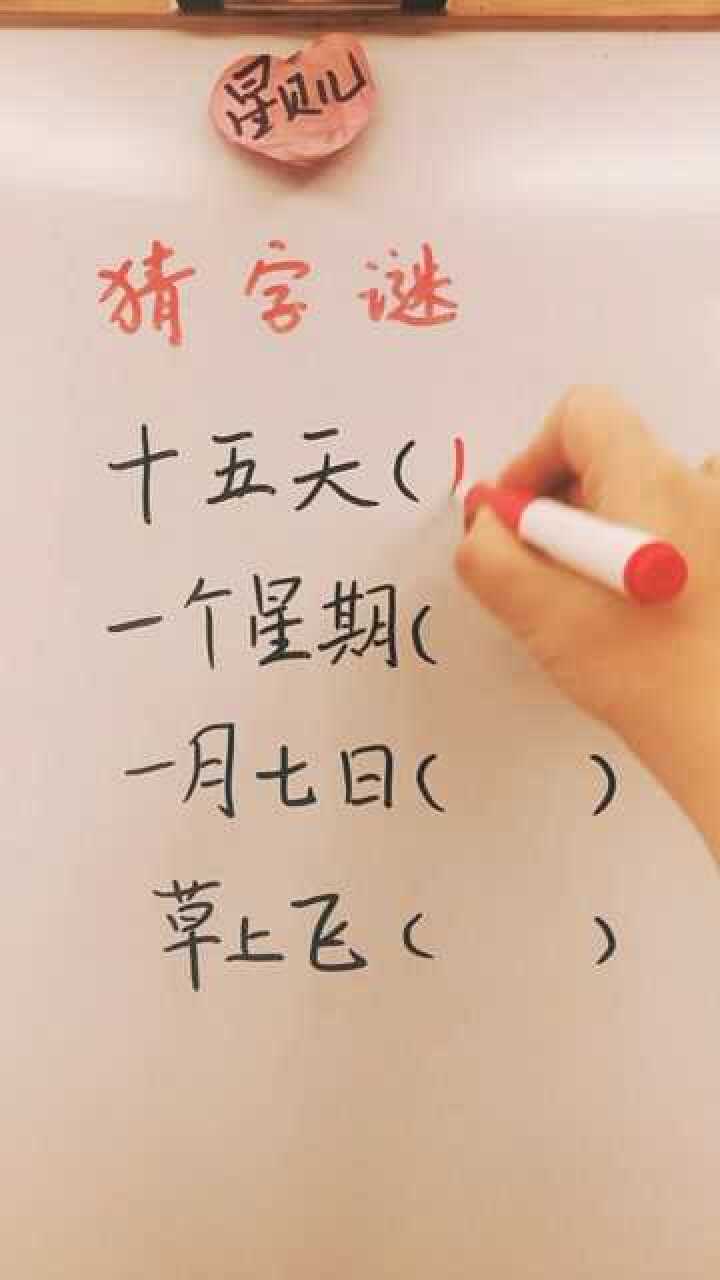 星贝儿
猜字谜
十五天(
一个星期(
一月七日( )
草上飞( )